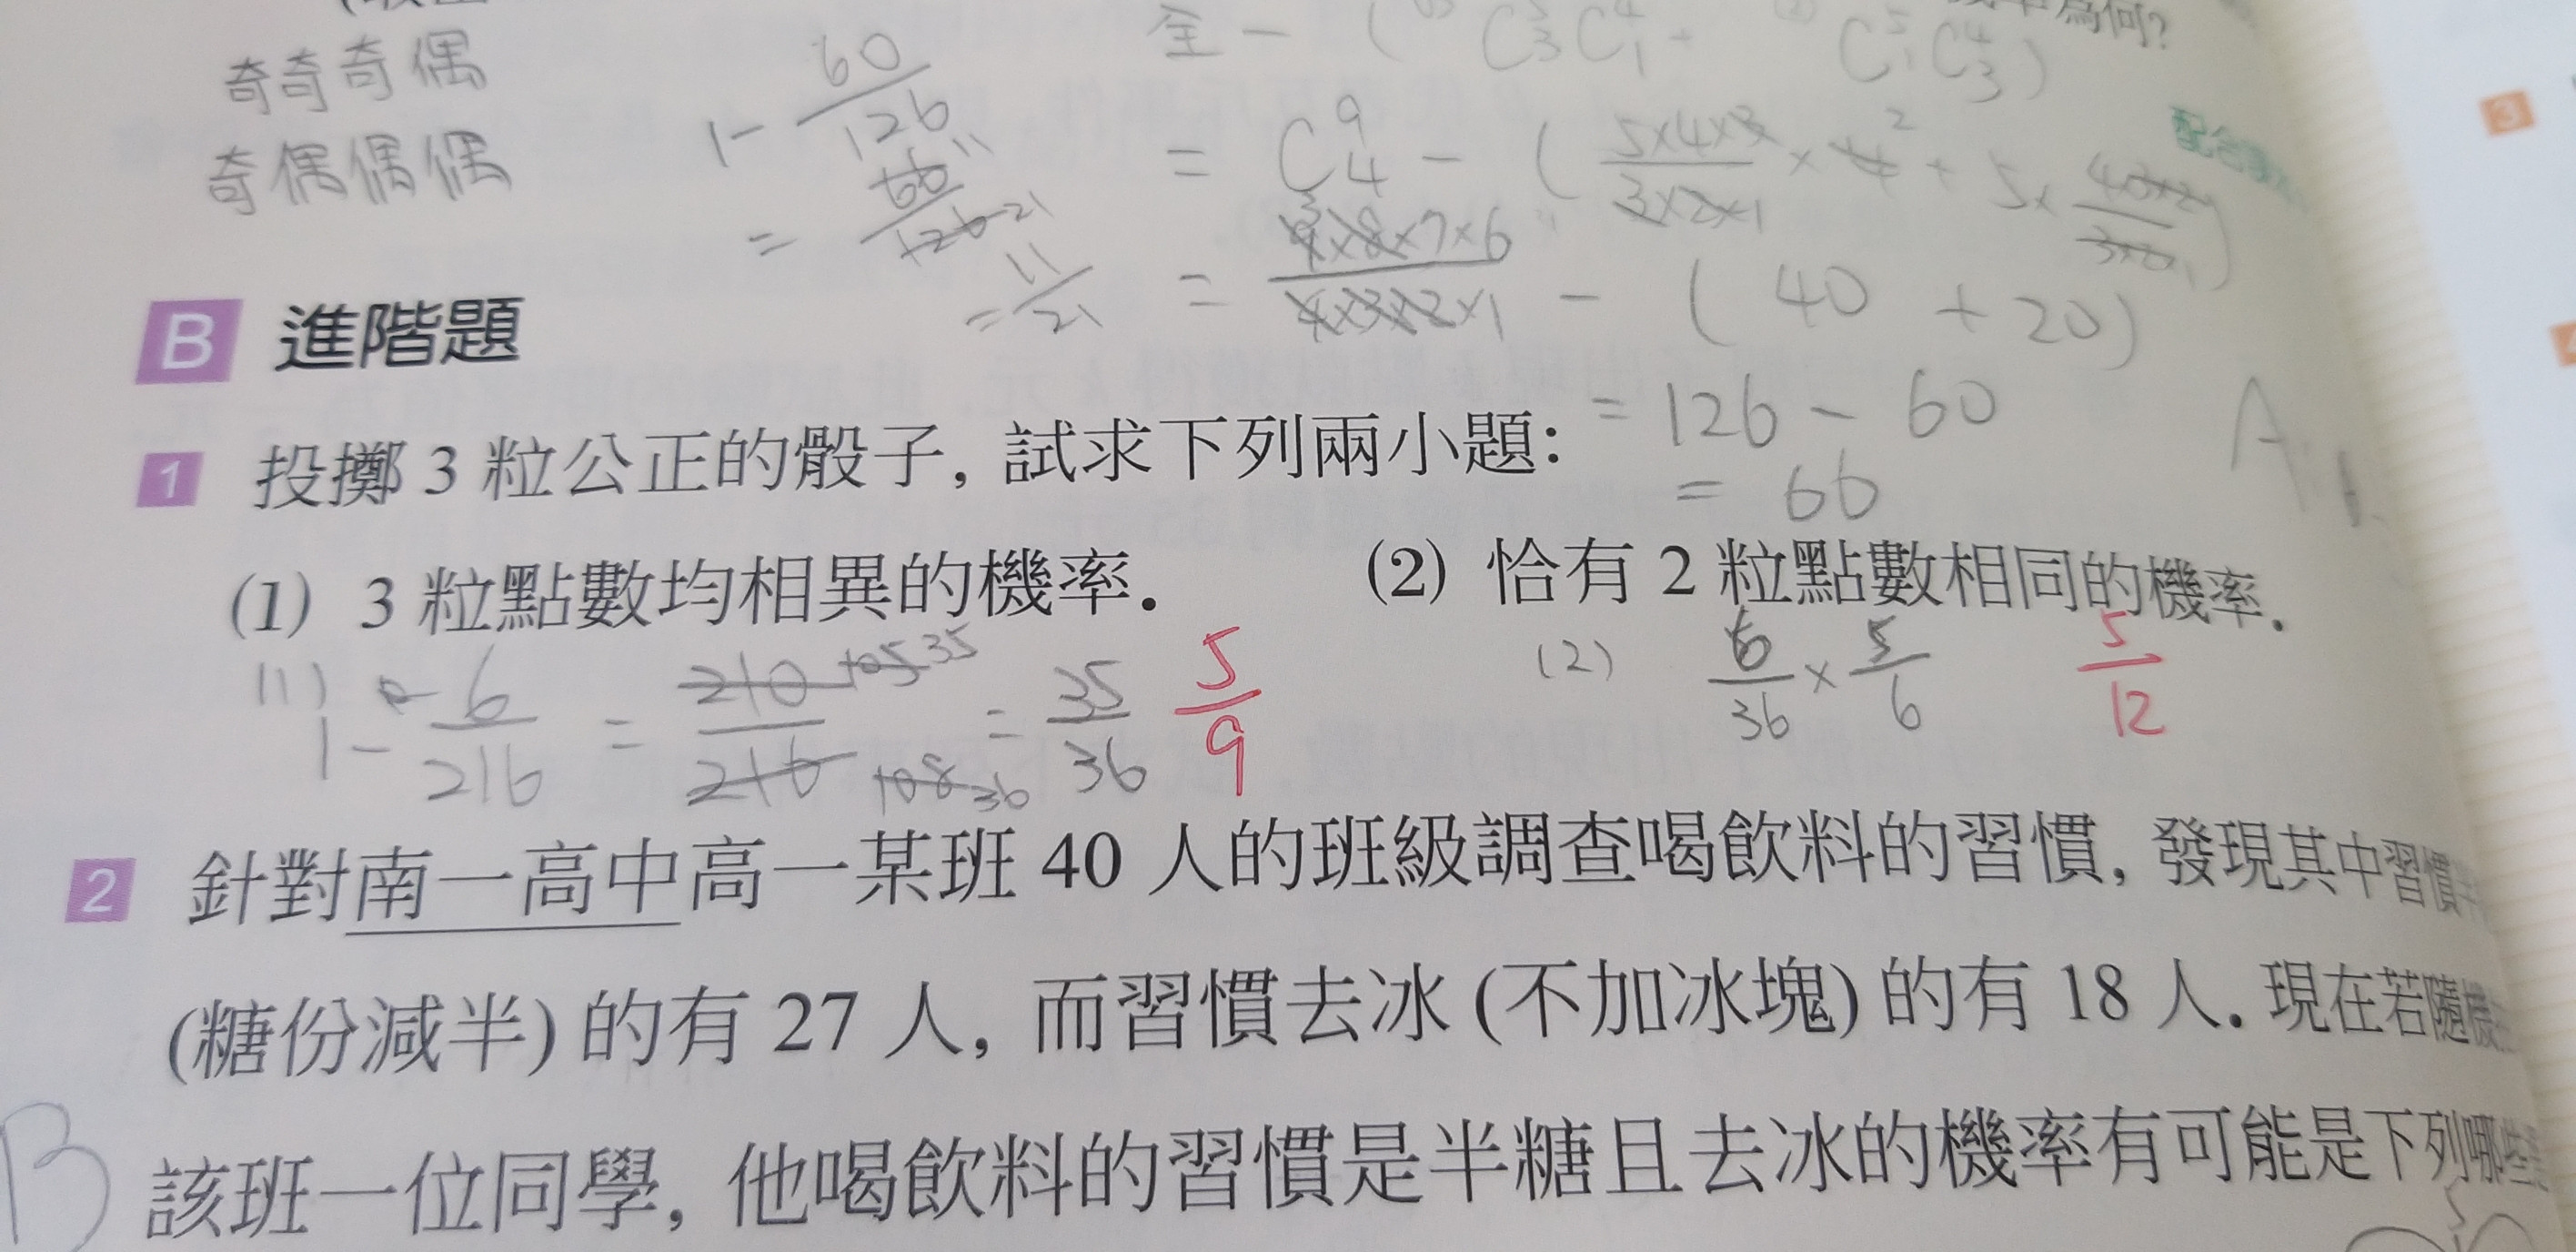 為何?
全 - ( C³ C⁴₁ + C⁵₁ C⁴₃ )
奇奇奇偶
奇偶偶偶
1 - 60/126
= 66/126 11 21
= 11/21
= C⁹₄ - ( 5×4×3/3×2×1 × 4 2 + 5× 4×3×2/3×2×1 )
= 9×8×7×6/4×3×2×1 - ( 40 + 20 )
= 126 - 60
= 66
配合
3
B 進階題
1 投擲 3 粒公正的骰子, 試求下列兩小題:
(1) 3 粒點數均相異的機率. (2) 恰有 2 粒點數相同的機率.
(1) 1 - 6/216 = 210/216 105 35 108 36 = 35/36 5/9
(2) 6/36 × 5/6 5/12
2 針對南一高中高一某班 40 人的班級調查喝飲料的習慣, 發現其中習慣半
(糖份減半) 的有 27 人, 而習慣去冰 (不加冰塊) 的有 18 人. 現在若隨機
B
該班一位同學, 他喝飲料的習慣是半糖且去冰的機率有可能是下列哪些